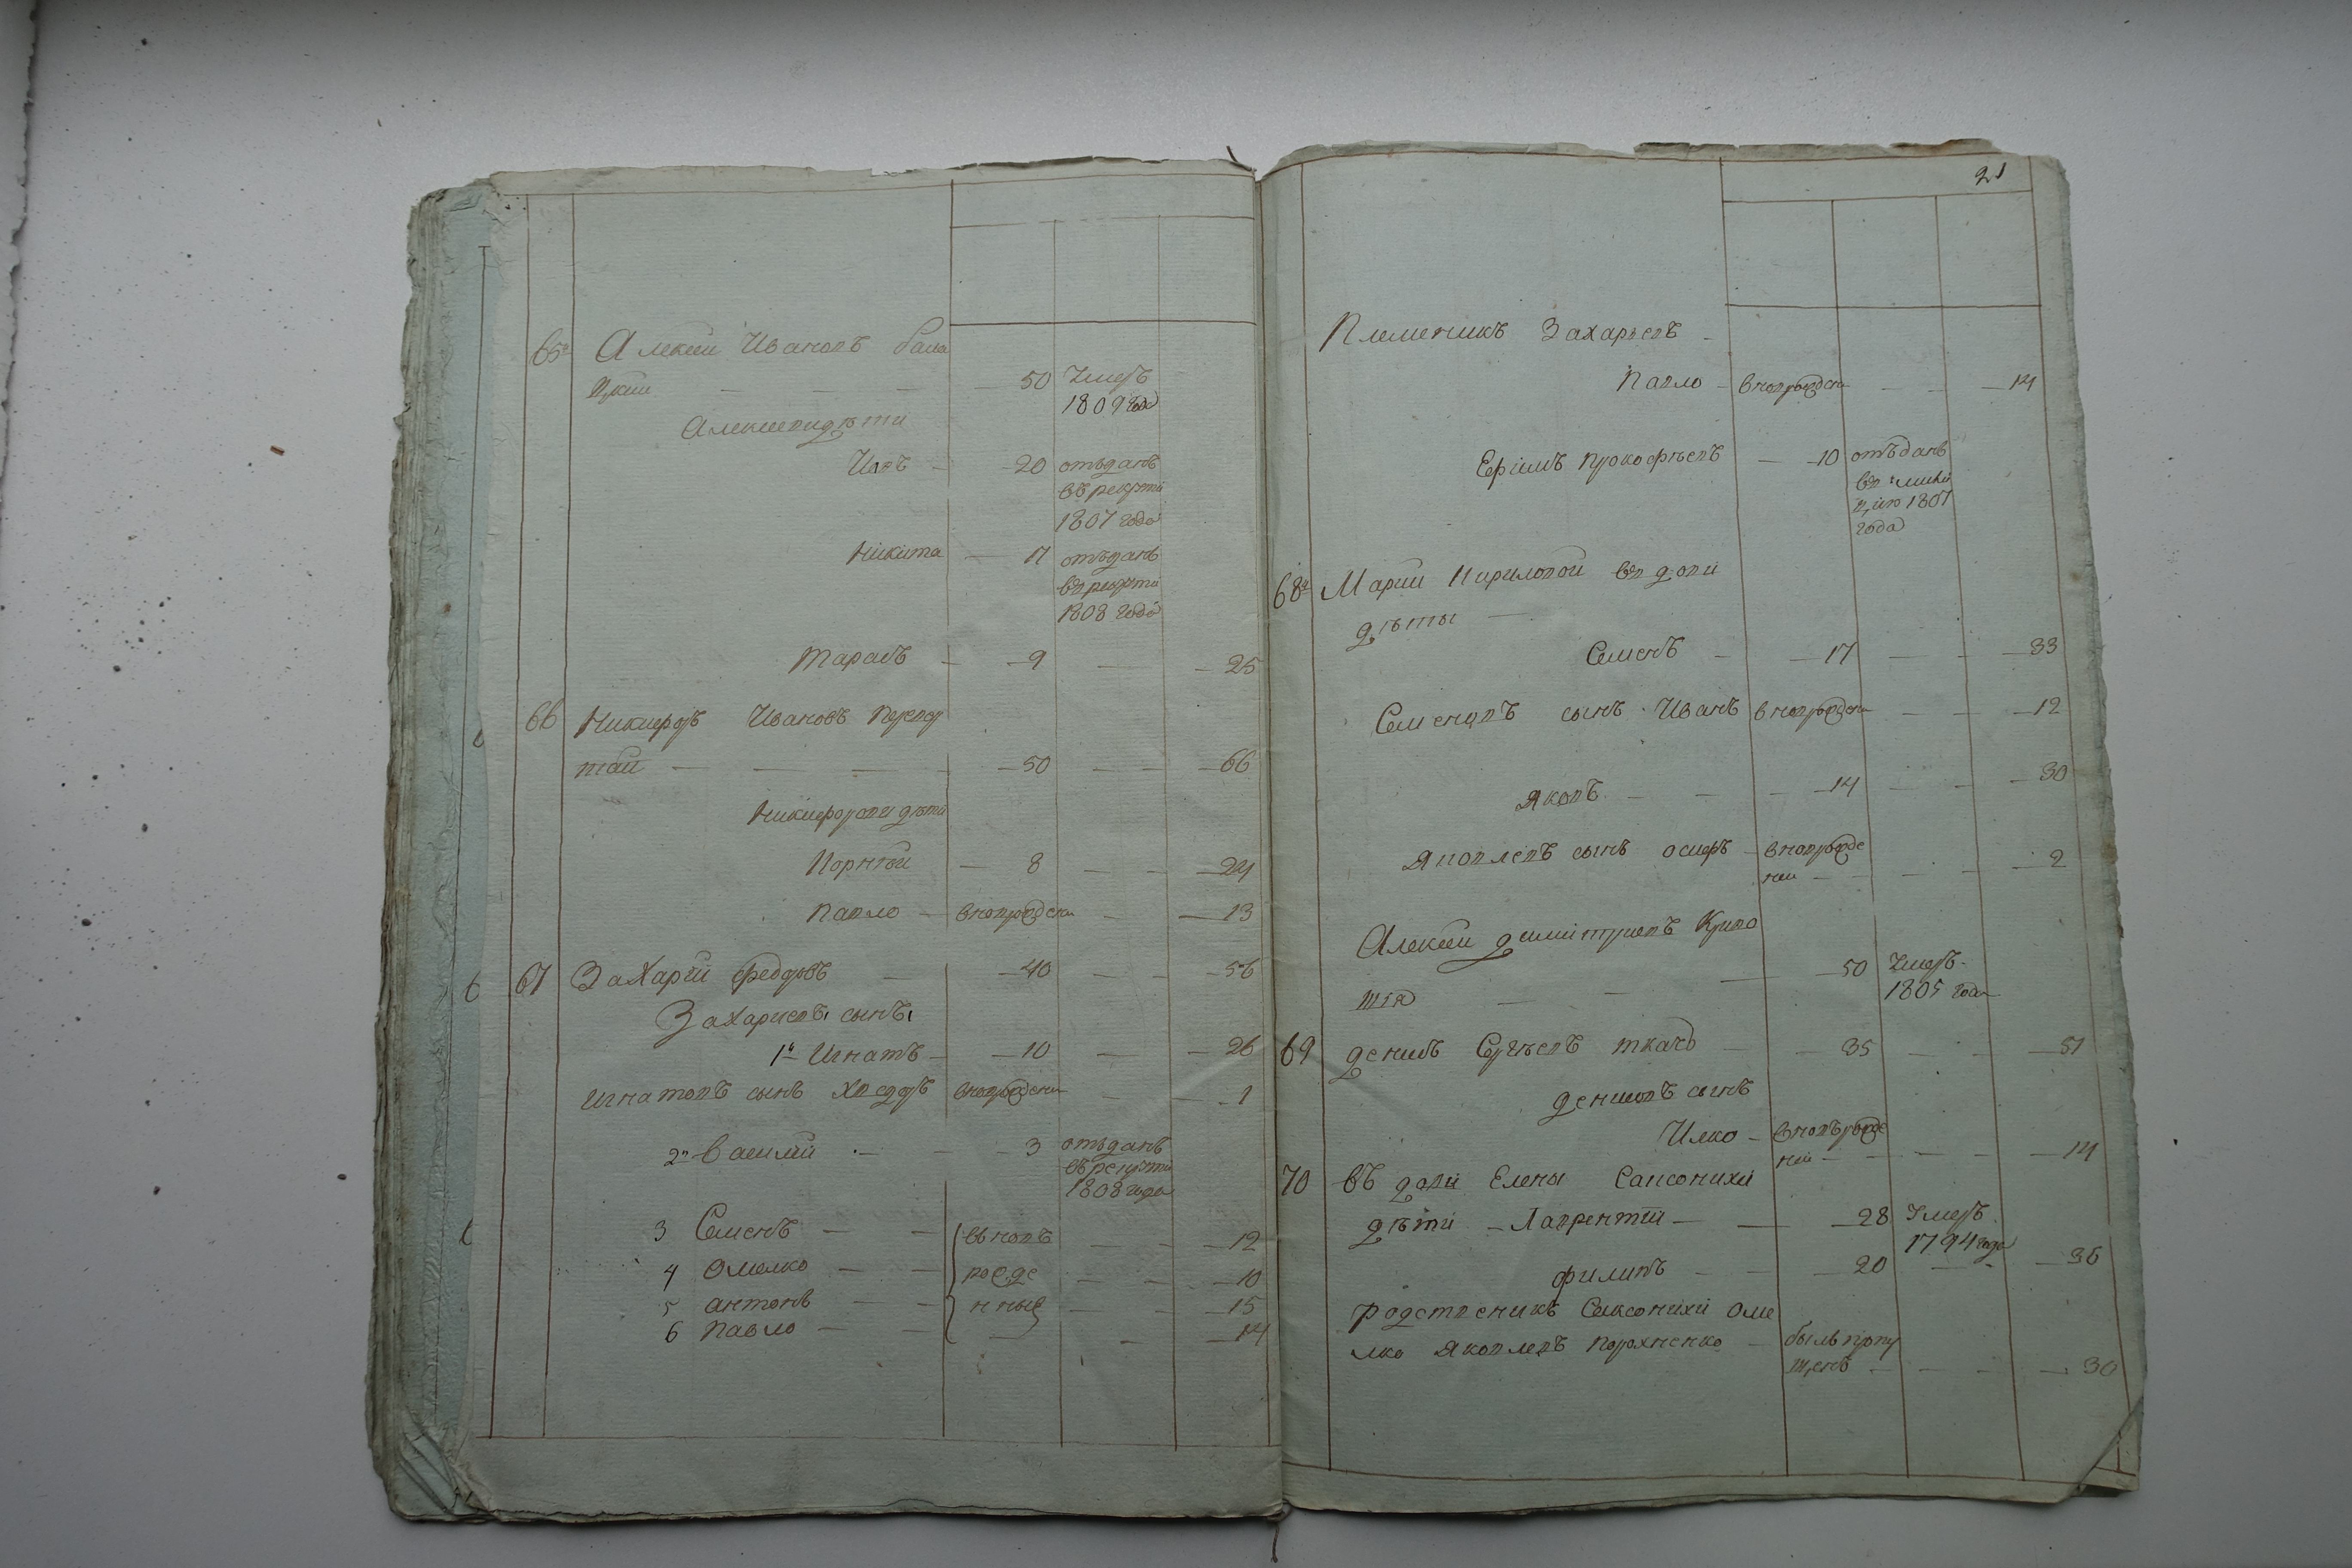 65й Алексей Ивановъ Бала
цкий — — — 50 Умеръ
1809 года
Алексеевы дѣти
Илъ — 20 отъданъ
въ рекруты
1807 года
Никита — 17 отъданъ
въ рекруты
1808 года
Тарасъ — 9 — 25
66 Никифоръ Ивановъ
тай — — — 50 — — 66
Никифоровы дѣти
Корній — 8 — — 24
Павло — вновьрожденн — 13
67 Захарій Федоровъ — 40 — — 56
Захариевъ сынъ
1й Игнатъ — 10 — — 26
Игнатовъ сынъ Хведоръ вновьрожденн — 1
2й Василій — — 3 отъданъ
въ рекруты
1808 года
3 Семенъ — — въновъ — — 12
4 Омелко — — рожде — — 10
5 Антонъ — — нные — — 15
6 Павло — — — — 14
21
Племеникъ Захарьевъ —
Павло — вновьрожденн — — 14
Ефимъ Прокофьевъ — 10 отъданъ
въ милі
цию 1807
года
68й Марии Кириловой вдови
дѣты —
Семенъ — 17 — — 33
Семеновъ сынъ Иванъ вновьрожденн — — 12
Яковъ — — 14 — — 30
Яковлевъ сынъ Осипъ — вновьрожде
нни — — — 2
Алексей Димитриевъ Криво
шія — — — 50 Умеръ
1805 года
69 Денисъ Сергѣевъ Ткачъ — 35 — — 51
Денисовъ сынъ
Илко — вновъ рожде
ний — — — 14
70 Въдовы Елены Самсонихи
дѣти — Лаврентій — — 28 Умеръ
1794 года
Филипъ — — 20 — — 36
родственикъ Самсонихи Оме
лко Яковлевъ Порохненко — былъ пропу
щенъ — — — 30